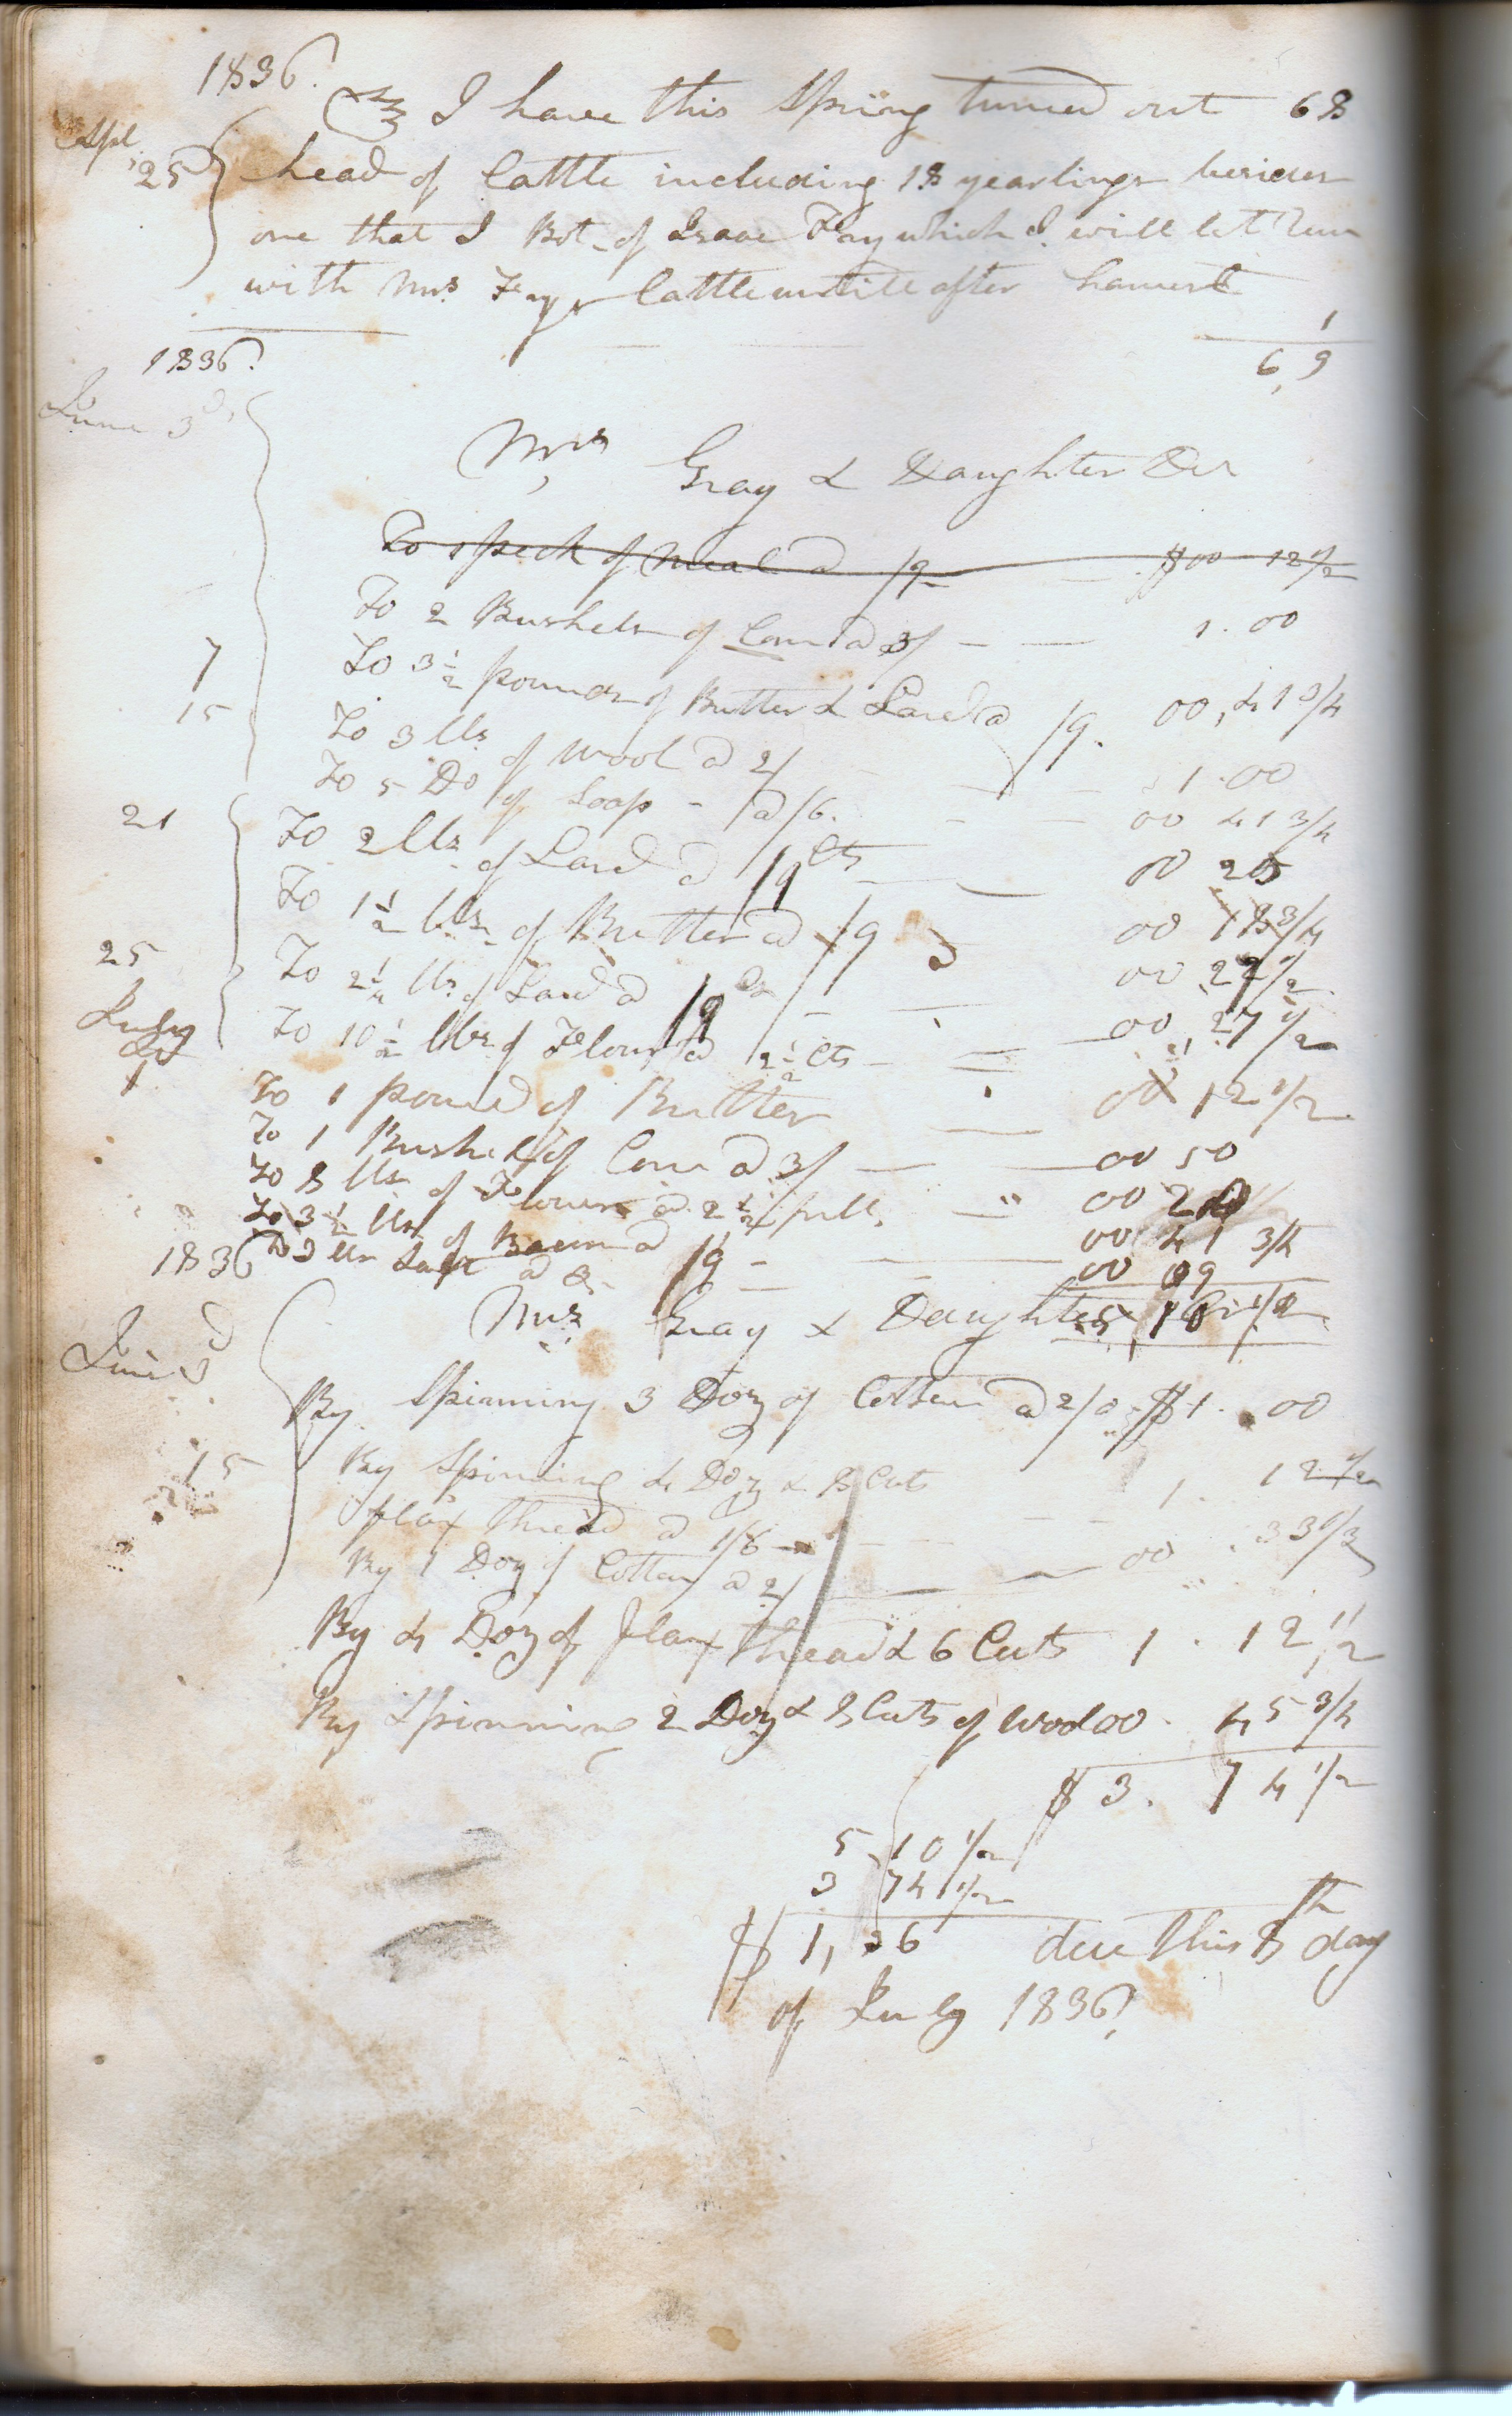 1836.
I have this Spring turned out 68
Apl. 25 head of Cattle including 18 yearlings besides
one that I Bot. of Isaac Fay which I will let run
with Mrs Fays Cattle untile after harvest
1
69
1836.
June 3d
Mrs Gray & Daughter Dr
To 1 peck of Meal @ /9 $00 12 1/2
To 2 Bushels of Corn @ 3/ 1.00
7 To 3 1/2 pounds of Butter & Lard @ /9. 00,41 3/4
15 To 3 lbs of Wool @ 2/ 1.00
To 5 Do of Soap @ /6. 00 41 3/4
21 To 2 lbs of Lard @ /9 Cts 00 25
To 1 1/2 lbs. of Butter @ /9 00 18 3/4
25 To 2 1/4 lbs. of Lard @ /9 00 27 1/2
To 10 1/2 lbs of Flour @ 2 1/2 Cts 00, 27 1/2
July 1 To 1 pound of Butter 00 12 1/2
To 1 Bushel of Corn @ 3/ 00 50
To 8 lbs of Flour @ 2 1/2 00 20
To 3 1/2 lbs of Bacon @ /9 00 41 3/4
To 3 lbs Salt @ 3 00 09
1836 Mrs Gray & Daughter Cr 5,10 1/2
June 3d
By Spinning 3 Doz of Cotten @ 2/0 $1.00
15 By Spinning 4 Doz & 8 Cuts 1.12 1/2
flax thread @ 1/6
By 1 Doz of Cotten @ 2/ 00.33 1/3
By 4 Doz of flax thread & 6 Cuts 1.12 1/2
By Spinning 2 Doz & 8 Cuts of Wool 00.45 3/4
$3.74 1/2
5.10 1/2
3 74 1/2
$1,36 due this 8th day
of July 1836.